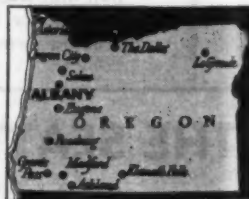 Astoria
Oregon City
The Dalles
La Grande
Salem
ALBANY
Eugene
OREGON
Roseburg
Grants Pass
Medford
Klamath Falls
Ashland